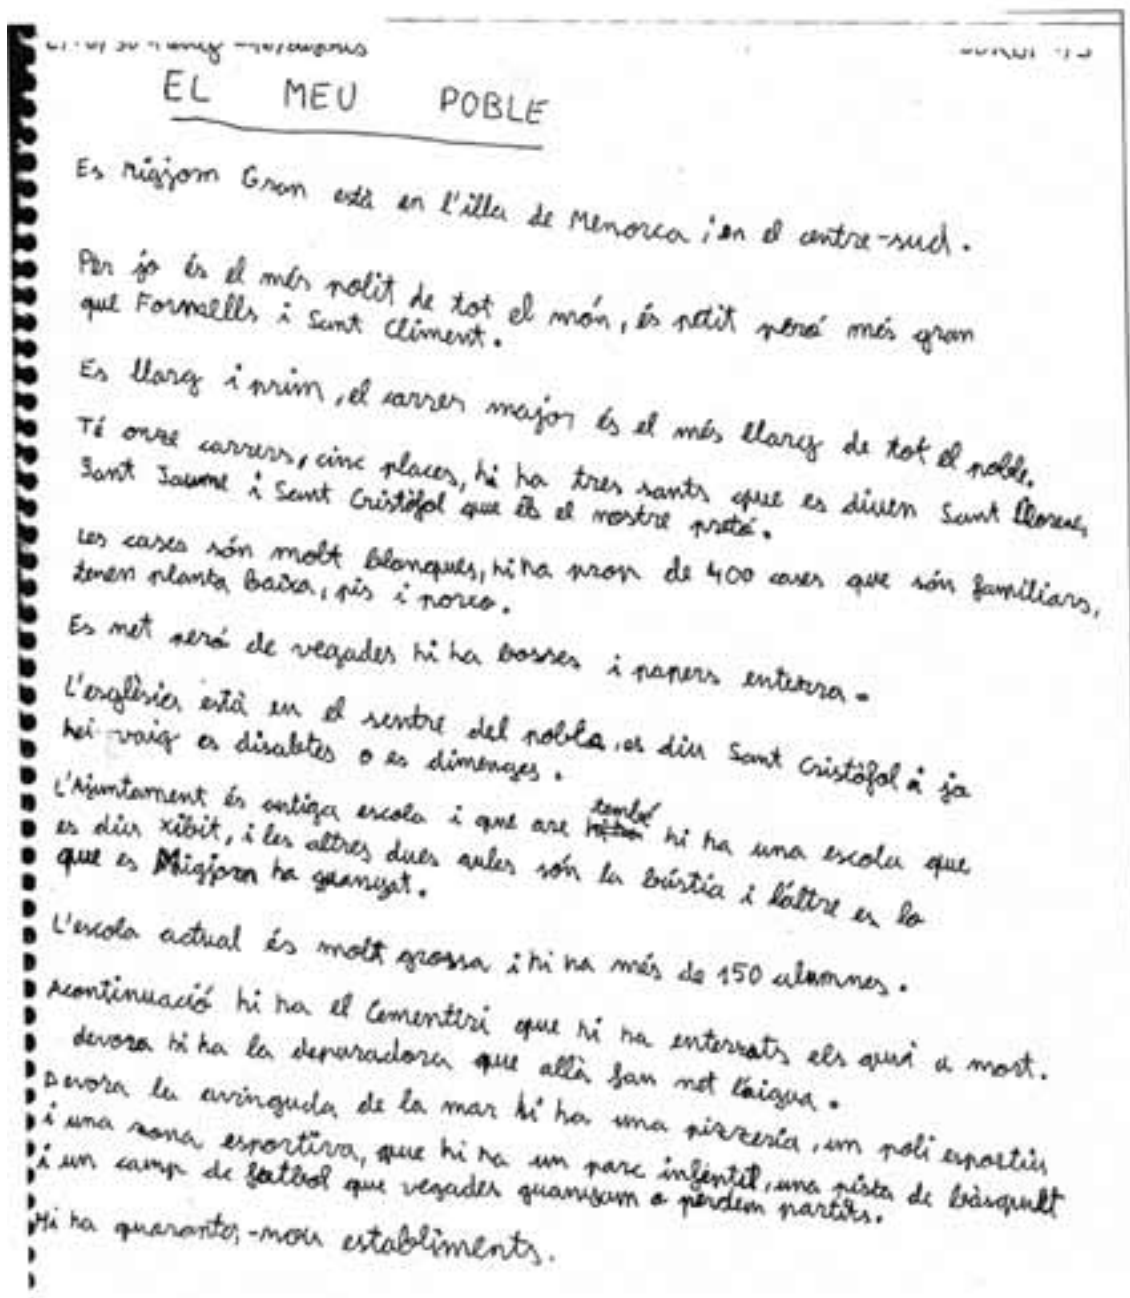 EL MEU POBLE
Es Migjorn Gran està en l'illa de Menorca i en el centre-sud.
Per jo és el més polit de tot el món, és petit peró més gran
que Fornells i Sant Climent.
Es llarg i prim, el carrer major és el més llarg de tot el poble.
Té onze carrers, cinc places, hi ha tres sants que es diuen Sant Llorenç,
Sant Jaume i Sant Cristòfol que és el nostre pató.
Les cases són molt blanques, hi ha prop de 400 cases que són familiars,
tenen planta baixa, pis i porxo.
Es net peró de vegades hi ha bosses i papers enterra.
L'esglèsia està en el sentre del pobla, es diu Sant Cristòfol i jo
hei vaig es disabtes o es dimenges.
L'Ajuntament és antiga escola i que are també hi ha una escola que
es diu Xibit, i les altres dues aules són la bústia i l'altre es lo
que es Migjorn ha guanyat.
L'escola actual és molt grossa i hi ha més de 150 alumnes.
Acontinuació hi ha el Cementiri que hi ha enterrats els qui a mort.
devora hi ha la depuradora que allà fan net l'aigua.
Devora la avinguda de la mar hi ha una pizzeria, um poli esportiu
i una zona esportiva, que hi ha un parc infentil, una pista de bàsquelt
i un camp de futbol que vegades guanyam o perdem partits.
Hi ha quaranta-nou establiments.